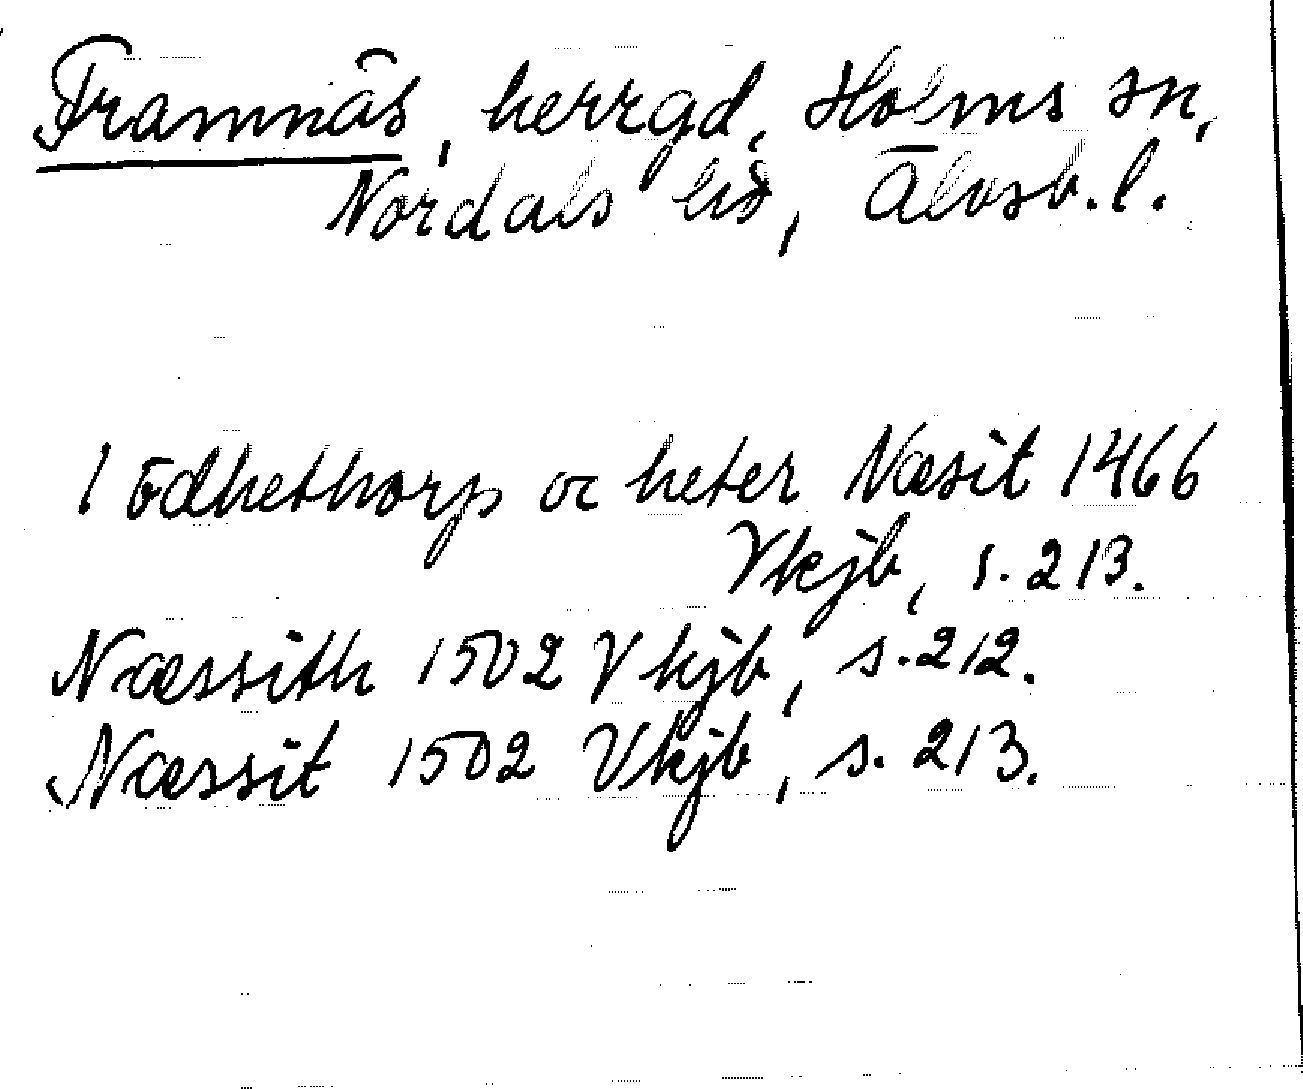 Framnäs, herrgd, Holms sn,
Nordals hd, Älvsb. l.
I Ødhethorp oc heter Næsit 1466
Vkjb, s. 213.
Næssith 1502 Vkjb, s. 212.
Næssit 1502 Vkjb, s. 213.